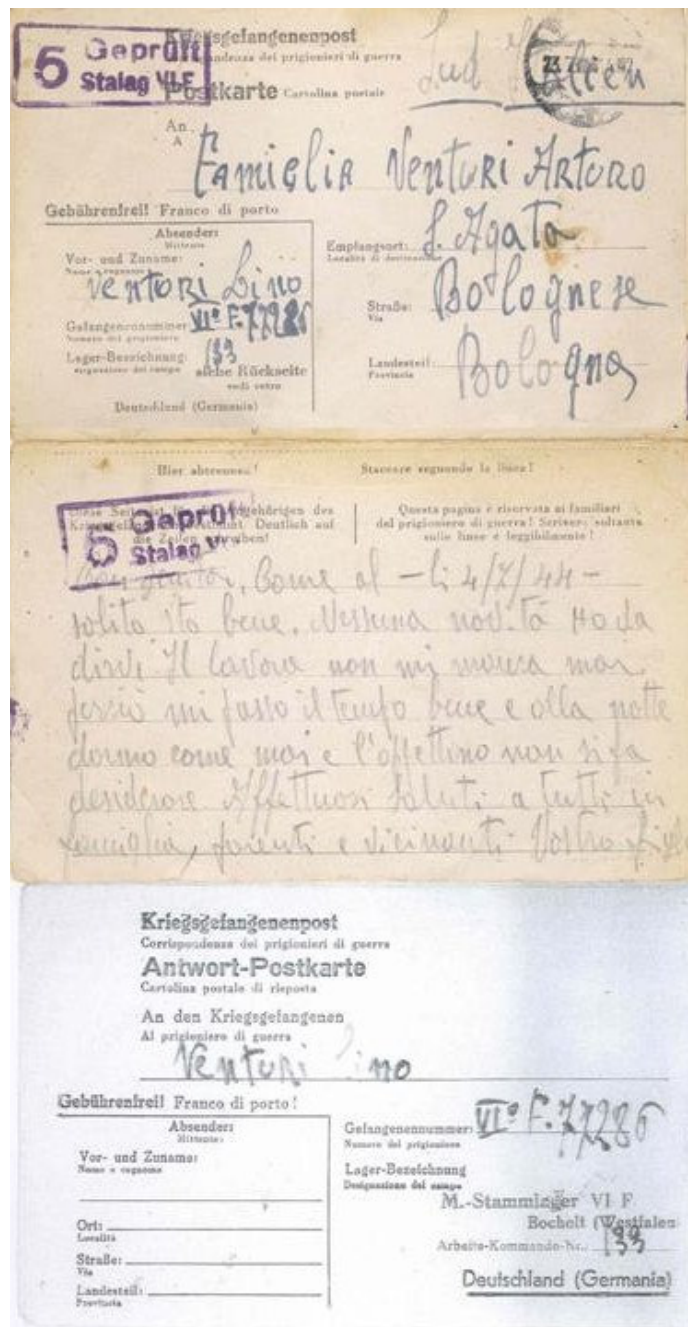 5 Geprüft
Stalag VI F
Kriegsgefangenenpost
Corrispondenza dei prigionieri di guerra
Postkarte Cartolina postale
An
A
Famiglia Venturi Arturo
Gebührenfrei! Franco di porto
Absender:
Mittente
Vor- und Zuname:
Nome e cognome
Venturi Lino
Gefangenennummer VI° F. 77286
Numero del prigioniero
Lager-Bezeichnung: 133
siehe Rückseite
vedi retro
Deutschland (Germania)
Empfangsort: S. Agata
Località di destinazione
Bolognese
Straße:
Via
Landesteil: Bologna
Provincia
Hier abtrennen! Staccare seguendo la linea!
Diese Seite ist für die Angehörigen des
Kriegsgefangenen bestimmt. Deutlich auf
die Zeilen schreiben!
Questa pagina è riservata ai familiari
del prigioniero di guerra! Scrivere soltanto
sulle linee e leggibilmente!
5 Geprüft
Stalag VI
Come al - li 4/7/44 -
solito sto bene. Nessuna novità ho da
dirvi Il lavoro non mi manca mai
mi passo il tempo bene e alla notte
dormo come mai e l'appettino non si fa
desiderare Affettuosi saluti a tutti in
famiglia, parenti e vicinanti Vostro figlio
Kriegsgefangenenpost
Corrispondenza dei prigionieri di guerra
Antwort-Postkarte
Cartolina postale di risposta
An den Kriegsgefangenen
Al prigioniero di guerra
Venturi Lino
Gebührenfrei! Franco di porto!
Absender:
Mittente:
Vor- und Zuname:
Nome e cognome
Ort:
Località
Straße:
Via
Landesteil:
Provincia
Gefangenennummer: VI° F. 77286
Numero del prigioniero
Lager-Bezeichnung
Designazione del campo
M.-Stammlager VI F
Bocholt (Westfalen
Arbeits-Kommando-Nr. 133
Deutschland (Germania)